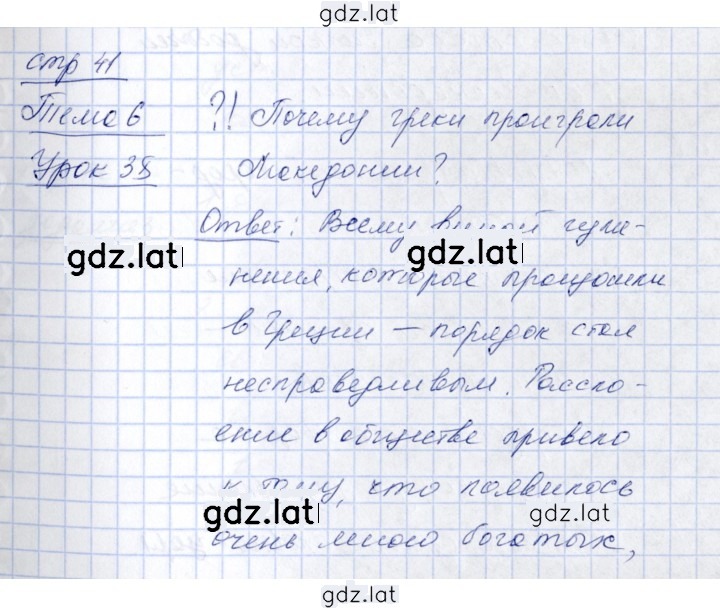 gdz.lat
стр 41
Тема 6
?! Почему греки проиграли
Урок 38
Македонии?
Ответ: Всему виной изме-
gdz.lat
gdz.lat
нения, которые произошли
в Греции — порядок стал
несправедливым. Рассло-
ение в обществе привело
к тому, что появилось
gdz.lat
gdz.lat
очень много богатых,
gdz.lat